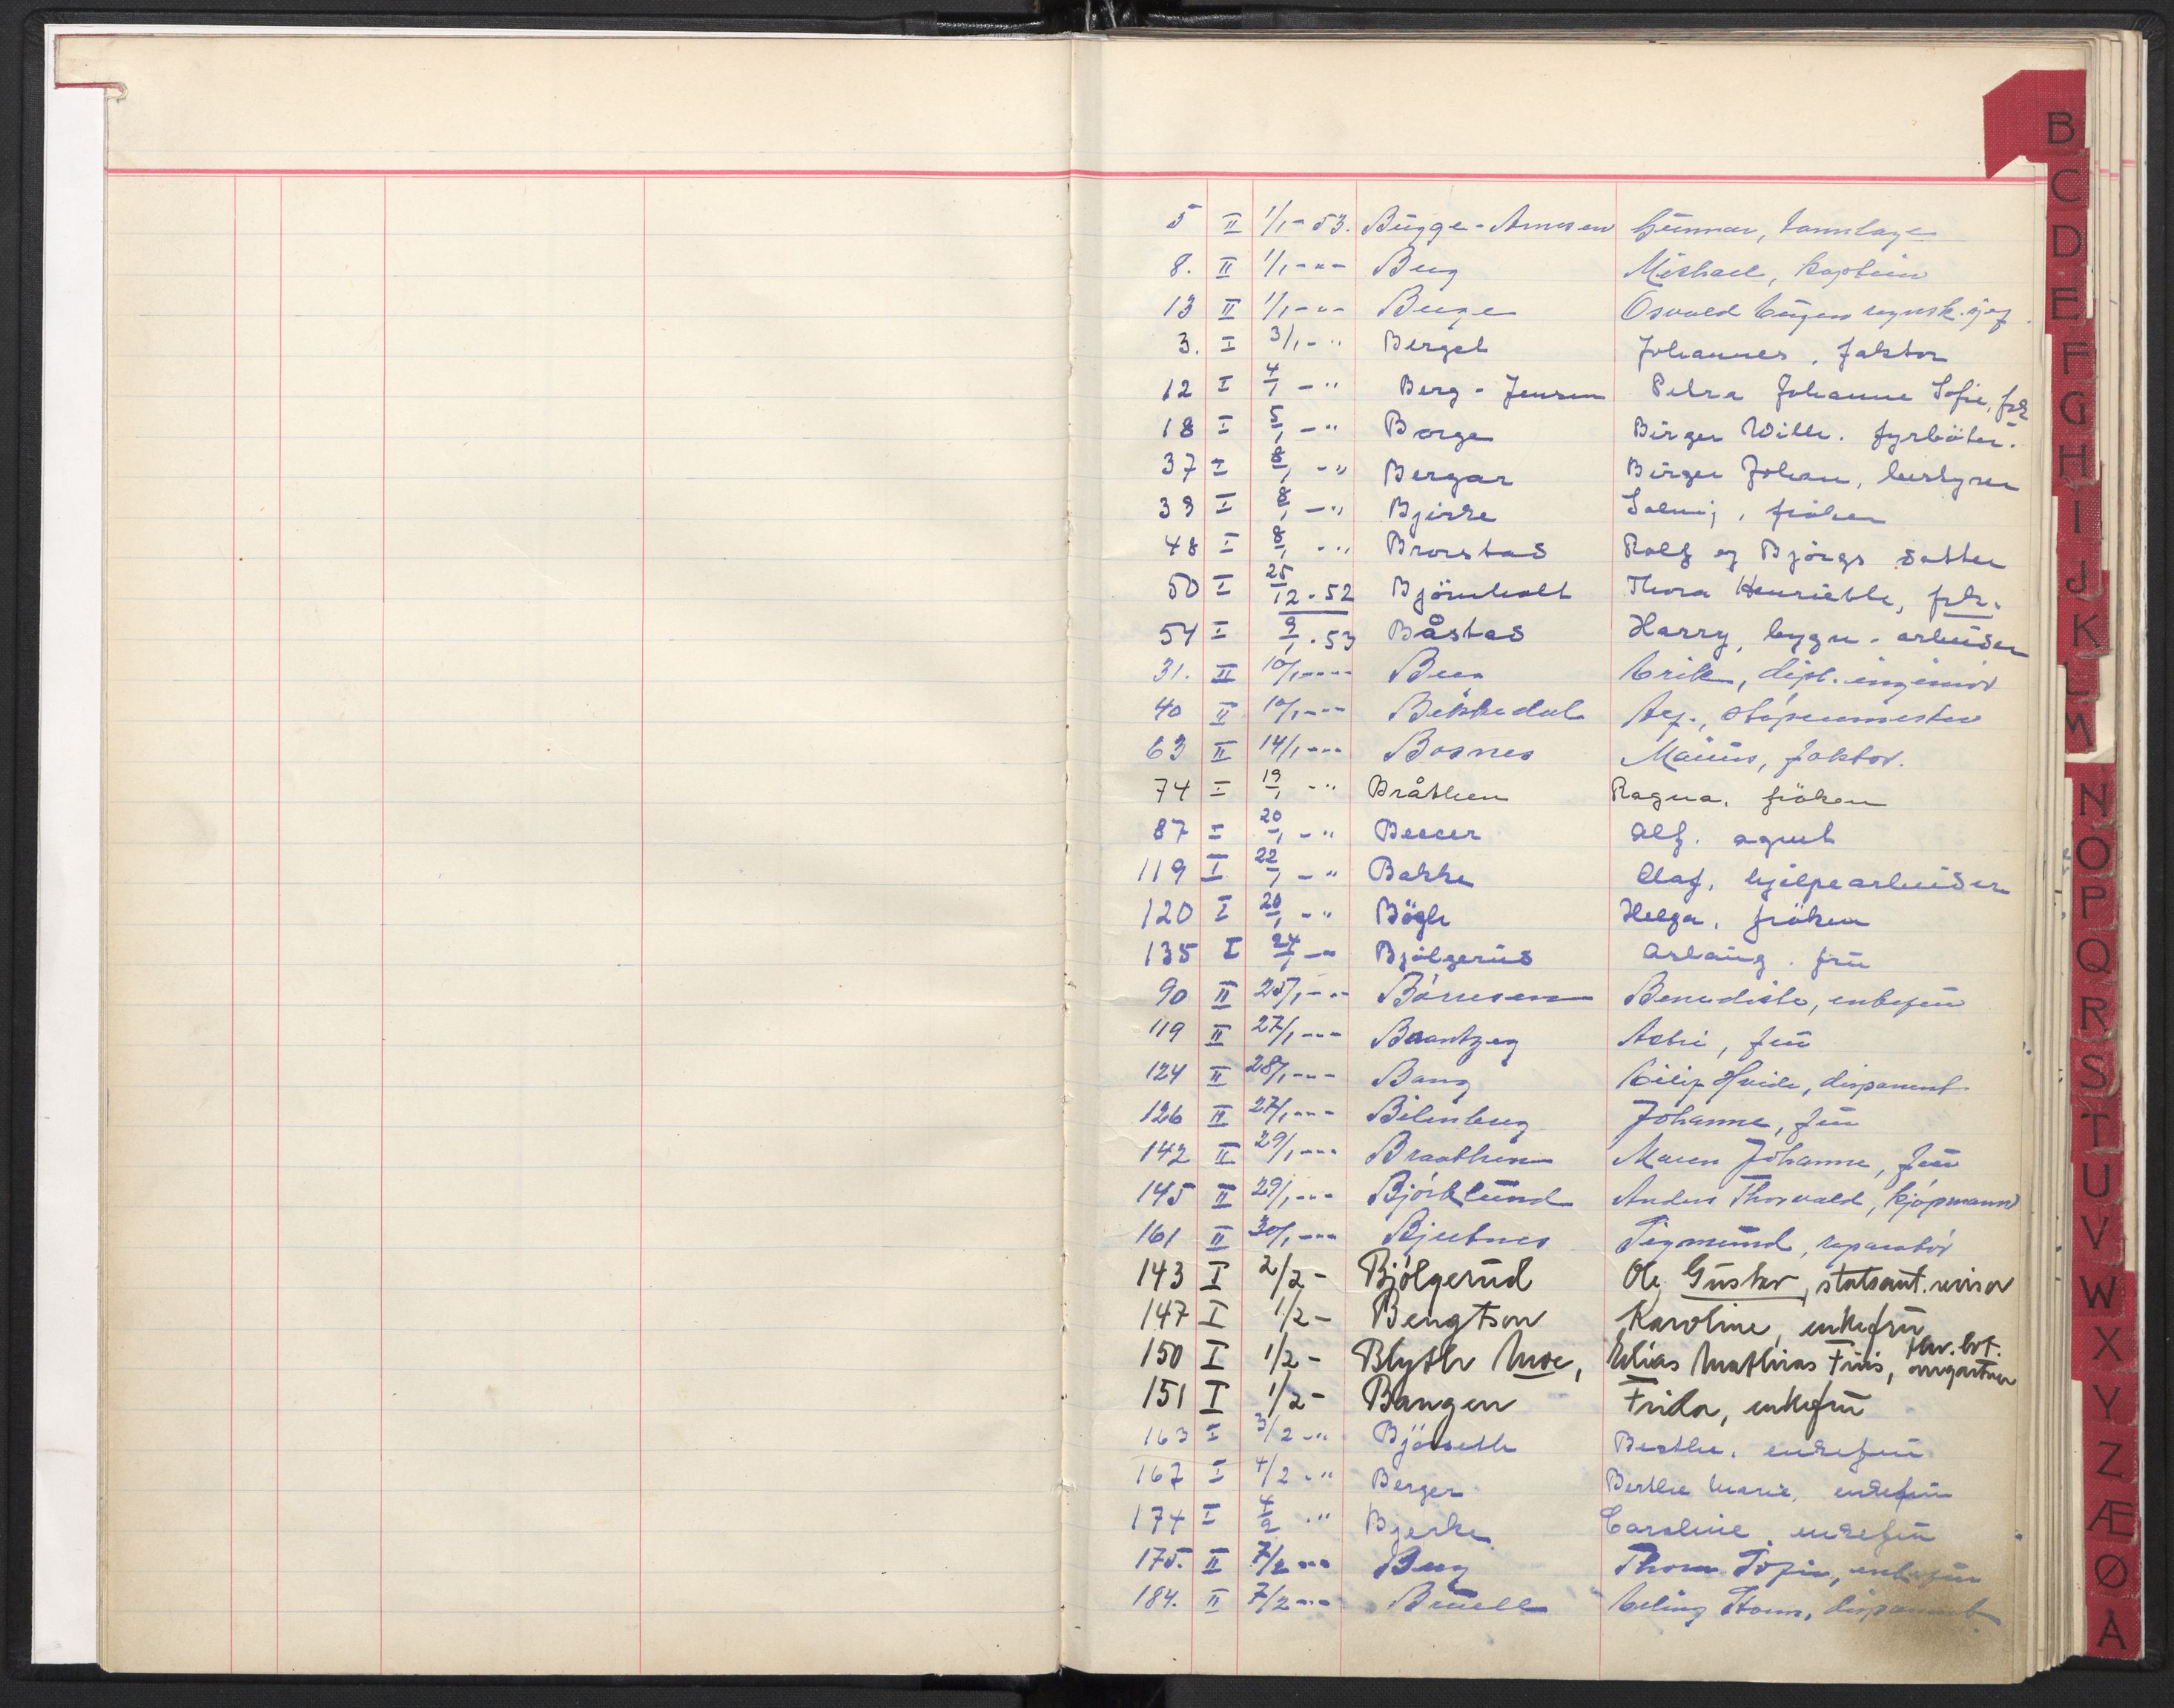 B
C
D
E
F
G
H
I
J
K
L
M
N
O
P
Q
R
S
T
U
V
W
X
Y
Z
Æ
Ø
A
5 II 1/1-53. Bugge-Arnesen Gunnar, tannlæge
8. II 1/1-"- Berg Michael, kaptein
13 II 1/1-"- Berge Osvald Eugen regnsk.sjef.
3. I 3/1-" Berget Johannes, faktor
12 I 4/1-" Berg-Jensen Petra Johanne Sofie, frk
18 I 5/1-" Borge Birger Wilh. fyrböter.
37 I 8/1-" Bergar Birger Johan, bestyrer
39 I 8/1-" Bjerke Solveig, fröken
48 I 8/1-" Brorstad Rolf og Björgs datter
50 I 25/12-52 Björnholt Thora Henriette, frk.
54 I 9/1-53 Båstad Harry, bygn.-arbeider
31. II 10/1-"- Erik, dipl.ingeniör
40 II 10/1-"- Bekkedal støperimester
63 II 14/1-"- Bosnes Marius, faktor.
74 I 19/1-" Bråthen Ragna, fröken
87 I 20/1-" Becker Alf, agent
119 I 22/1-" Bakke Olaf, hjelpearbeider
120 I 20/1-" Bögh Helga, fröken
135 I 24/1-" Bjölgerud Aslaug, fru
90 II 25/1-"- Börresen Benedicte, enkefru
119 II 27/1-"- Brantzeg fru
124 II 28/1-"- Bang Hvide, disponent
126 II 27/1-"- Bilenberg Johanne, fru
142 II 29/1-"- Braathen Maren Johanne, fru
145 II 29/1-"- Björklund Anders Thorvald, kjøpmann
161 II 30/1-"- Bjertnes Sigmund, reparatör
143 I 2/2- Bjölgerud Ole Gustav, statsaut.revisor
147 I 1/2- Bengtson Karoline, enkefru
150 I 1/2- Blyth Moe, Elias Mathias Friis,
151 I 1/2- Bangen Frida, enkefru
163 I 3/2-" Bjöseth Berthe, enkefru
167 I 4/2-" Berger Berthe Marie, enkefru
174 I 4/2-" Bjerke Caroline, enkefru
175. II 7/2-"- Berg Thora Sofie, enkefru
184. II 7/2-"- Bruell Erling disponent